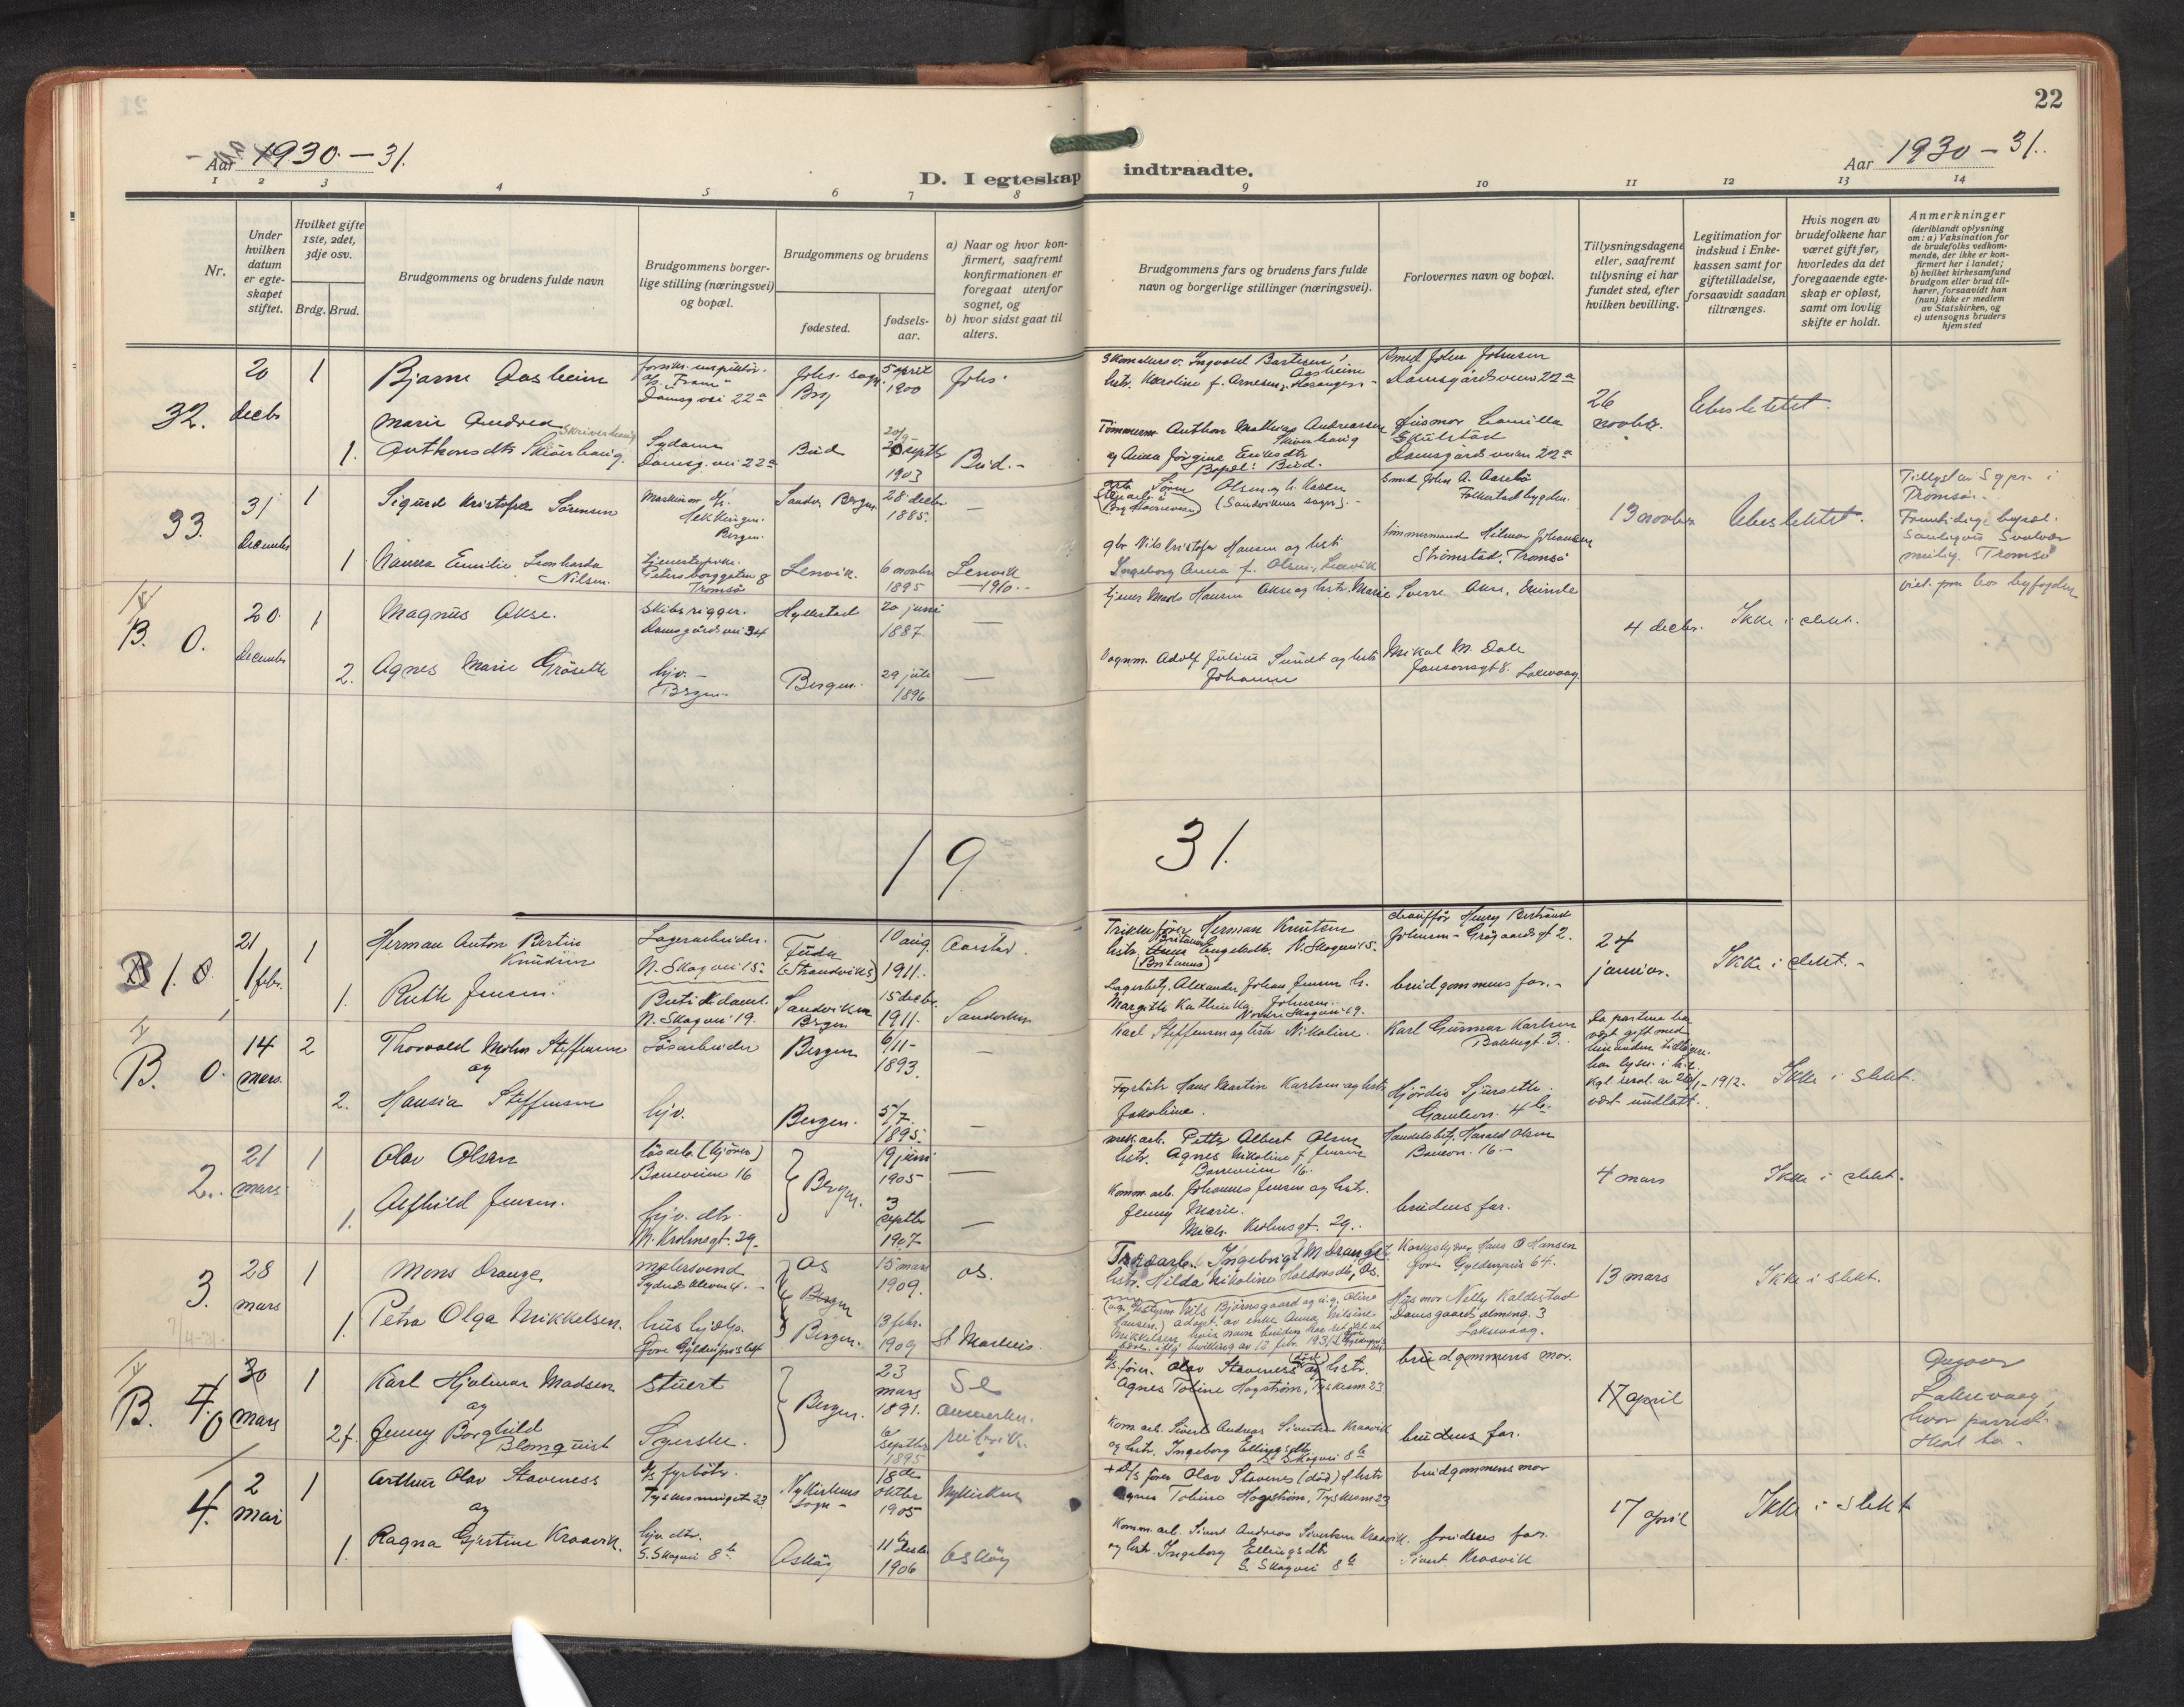 21
22
Aar 1930 - 31.
Aar 1930 - 31.
D. I egteskap indtraadte.
1 2 3 4 5 6 7 8 9 10 11 12 13 14
Nr.
Under hvilken datum er egteskapet stiftet.
Hvilket gifte 1ste, 2det, 3dje osv.
Brdg. Brud.
Brudgommens og brudens fulde navn
Brudgommens borgerlige stilling (næringsvei) og bopæl.
Brudgommens og brudens
fødested.
fødselsaar.
a) Naar og hvor konfirmert, saafremt konfirmationen er foregaat utenfor sognet, og
b) hvor sidst gaat til alters.
Brudgommens fars og brudens fars fulde navn og borgerlige stillinger (næringsvei).
Forlovernes navn og bopæl.
Tillysningsdagene eller, saafremt tillysning ei har fundet sted, efter hvilken bevilling.
Legitimation for indskud i Enkekassen samt for giftetilladelse, forsaavidt saadan tiltrænges.
Hvis nogen av brudefolkene har været gift før, hvorledes da det foregaaende egteskap er opløst, samt om lovlig skifte er holdt.
Anmerkninger
(deriblandt oplysning om: a) Vaksination for de brudefolks vedkommende, der ikke er konfirmert her i landet; b) hvilket kirkesamfund brudgom eller brud tilhører, forsaavidt han (hun) ikke er medlem av Statskirken, og c) utensogns bruders hjemsted
32. 20 decbr 1 Bjarne Aasheim
Damsg vei 22a
Johs. sogn Brg
5 april 1900
Johs.
Skomakersv. Ingvald Bastesen Aasheim
hstr. Karoline f. Arnesen,
Smed John Johnsen
Damsgårdsveien 22a
26 novbr.
Ubesletet.
1. Marie Andrea
Anthonsdtr Skiverhaug.
Sydame
Damsg. vei 22a
Bud
20 septbr 1903
Bud. -
Tømmerm Anthon Mathias Andreassen Skiverhaug
og Anna Jørgine Eriksdtr
Bopæl: Bud.
Husmor Camilla Skulstad
Damsgårdsveien 22a
33. 31 December 1 Sigurd Kristofer Sørensen
Maskinm d/s
Hekkingen.
Bergen.
Sandv. Bergen
28 decbr 1885.
Søren Olsen og h. Karen
(Sandvikens sogn). -
Smed John A. Aasebø
13 novbr
Ubeslektet.
Tillyst av Sgpr. i Tromsø.
Fremtidige bopæl. sandsynlig Svolvær
midlg. Tromsø
1 Nanna Emilie Leonharda Nilsen.
Petersborggaten 8
Tromsø
Lenvik.
6 novbr 1895
Lenvik 1910. -
gbr Nils Kristofer Hansen og hstr
Ingeborg Anna f. Olsen, Lenvik
tømmermand Hilmar Johansen
Strømstad, Tromsø
B. 0. 20. December 1 Magnus Akse.
Skibsrigger.
Damsgårdsvei 34
Hyllestad
20 juni 1887.
—
Mads Hansen Akse og hstr. Marie
Sverre Akse,
4 decbr.
Ikke i slekt.
viet. paa bor. byfogden
2. Agnes Marie Grøsette
hjv. -
Bergen. -
Bergen.
29 juli 1896
—
Vognm. Adolf Julius Sundt og hstr Johanne
Mikal M. Dale
Jansonsgt 8. Laksevaag.
19 31.
B 1. 0. 21 febr. 1 Herman Anton Bertin Knudsen
Lagerarbeider.
N. Skogvei 15.
Fude
(Strandviks)
10 aug. 1911.
Aarstad.
Herman Knutsen
hstr. Engelsdtr. N. Skogvei 15.
chauffør Henry Bertrand
Johnsen - Grågaardsgt 2.
24 januar.
Ikke i slekt. -
1. Ruth Jensen.
Butikkdame.
N. Skogvei 19.
Sandviken Bergen
15 decbr. 1911.
Sandviken
Lagerbetj. Alexander Johan Jensen h.
Margith Kathinka Johnsen..
Nordre Skogvei 19.
brudgommens far. -
B. 0. 14 mars. 2 Thorvald Mohn Steffensen
og
Løsarbeider
Bergen
6/11 - 1893.
—
Karl Steffensen og hstr Nikoline.
Karl Gunnar Karlsen
Bakkegt. 3.
Da partene har
vært gift med
hinanden tidligere.
har lysn. i h. t.
kgl resol. av 26/1 - 1912.
vært undlatt.
Ikke i slekt.
2. Hansia Steffensen
hjv.
Bergen.
5/7. 1895.
—
Fyrbøter Hans Martin Karlsen og hstr
Jakobine.
Hjørdis Sjursethe
2. 21 mars 1 Olav Olsen
løsarb. (kjører)
Baneveien 16
Bergen.
19 juni 1905
—
mek. arb. Petter Albert Olsen
hstr. Agnes Nikoline f Jensen
Baneveien 16.
Handelsbetj. Harald Olsen
Banevn. 16 -
4 mars
Ikke i slekt.
1. Alfhild Jensen.
hjv. dtr.
M. Krohnsgt. 29.
3 septbr 1907
—
Komm. arb. Johannes Jensen og hstr.
Jenny Marie.
Mich. Krohnsgt. 29.
brudens far.
3. 28 mars 1 Mons Drange.
malersvend
Os
Bergen
15 mars 1909.
os.
Ingebrigt M Drange
hstr. Hilda Nikoline Haldorsdtr, Os.
Hans O Hansen
Gyldenpris 64.
13 mars
Ikke i slekt.
1. Petra Olga Mikkelsen.
hushjelp.
Øvre Gyldenpris 64
Bergen.
3 febr. 1909
St Markus.
Nils Bjørnsgaard og u.g. Oline
Hansen.) adopt. av enke Anna Nilsine
Mikkelsen,
bevilling av 12 febr. 1931
Husmor Nelly Kaldestad
Damsgaards almeng. 3
Laksevaag.
B. 4. 0 30 mars 1 Karl Hjalmar Madsen
og
Stuert
Bergen.
23 mars 1891.
Se anmerkn.
d/s fører. Olav Stavenes (død) og hstr.
Agnes Tobine Hogstrøm, Tyskesm 23
brudgommens mor.
17 april
Laksevaag,
2 f. Jenny Borghild Blomquist
Syerske.
6 septbr 1895
Kom arb. Sivert Andreas Sivertsen Kraavik
og hstr. Ingeborg Ellingsdtr
S. Skogvei 8b
brudens far.
4. 2 mai 1 Arthur Olav Staveness
og
d/s fyrbøter.
Tyskesmuget 23
Nykirkens sogn -
18de oktbr 1905
Nykirken
+ D/s fører Olav Stavenes (død) & hstr
Agnes Tobine Hogstrøm, Tyskesm 23
brudgommens mor
17 april
Ikke i slekt
1. Ragna Gjertine Kraavik.
hjv. dtr.
S. Skogvei 8b
Askøy
11te 1906
Askøy
Komm. arb. Sivert Andreas Sivertsen Kraavik.
og hstr. Ingeborg Ellingsdtr
S. Skogvei 8b
brudens far.
Sivert Kraavik